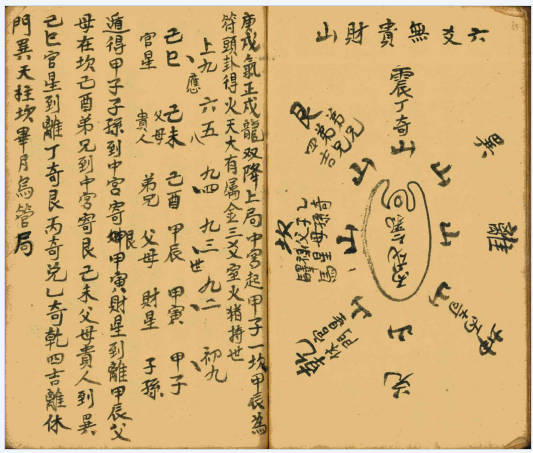 六爻無貴財山
震丁奇
巽
離
兌
乾
坎
艮
山
山
山
山
山
山
山
山
庚戌氣正戌龍双降上局中宮起甲子一坎甲辰為
符頭卦得火天大有属金三爻室火猪持世
上九應 六五八 九四 九三世 九二 初九
己巳 己未 己酉 甲辰 甲寅 甲子
官星 父母貴人 弟兄 父母 財星 子孫
遁得甲子子孫到中宮寄艮甲寅財星到離甲辰父
母在坎己酉弟兄到中宮寄艮己未父母貴人到巽
己巳官星到離丁奇艮丙奇兌乙奇乾四吉離休
門巽天柱坎畢月烏管局